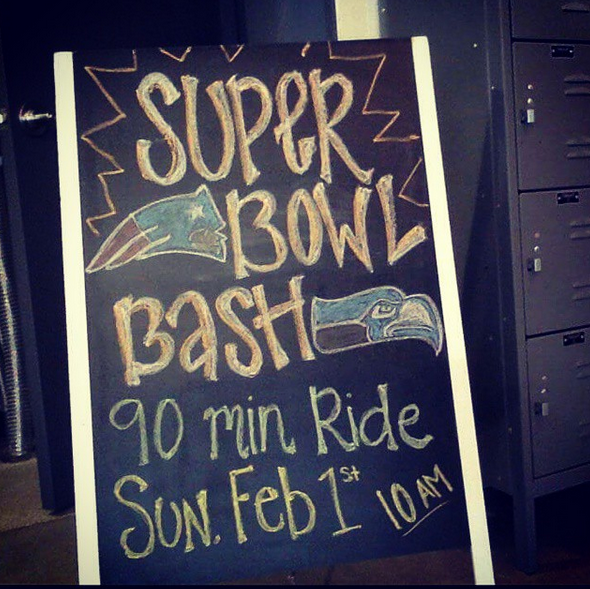 SUPER
BOWL
BASH
90 min Ride
SUN. Feb 1st 10 AM